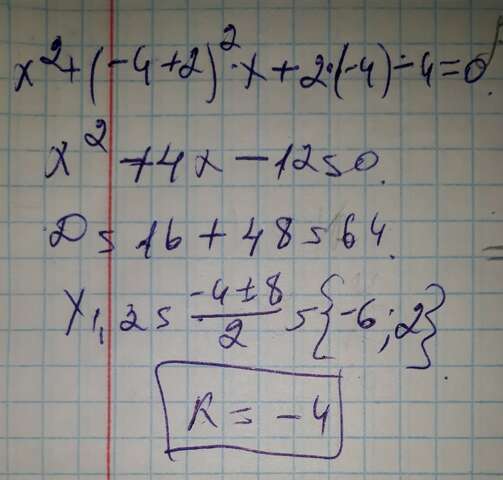 x² + (-4+2)² · x + 2·(-4) - 4 = 0
x² + 4x - 12 = 0.
D = 16 + 48 = 64.
x₁,₂ = (-4 ± 8)/2 = {-6; 2}.
R = -4